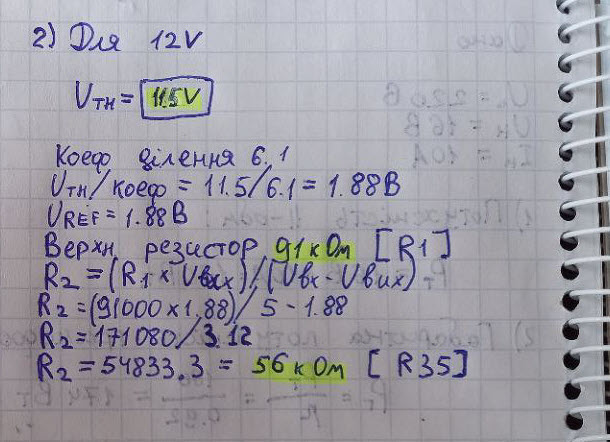 2) Для 12V
UТН = 11.5V
Коеф ділення 6.1
UТН/коеф = 11.5/6.1 = 1.88В
UREF = 1.88В
Верхн. резистор 91кОм [R1]
R2 = (R1 × Uвих)/(Uвх - Uвих)
R2 = (91000 x 1,88)/5 - 1.88
R2 = 171080/3.12
R2 = 54833.3 = 56кОм [R35]
Uн = 16В
Iн = 10А